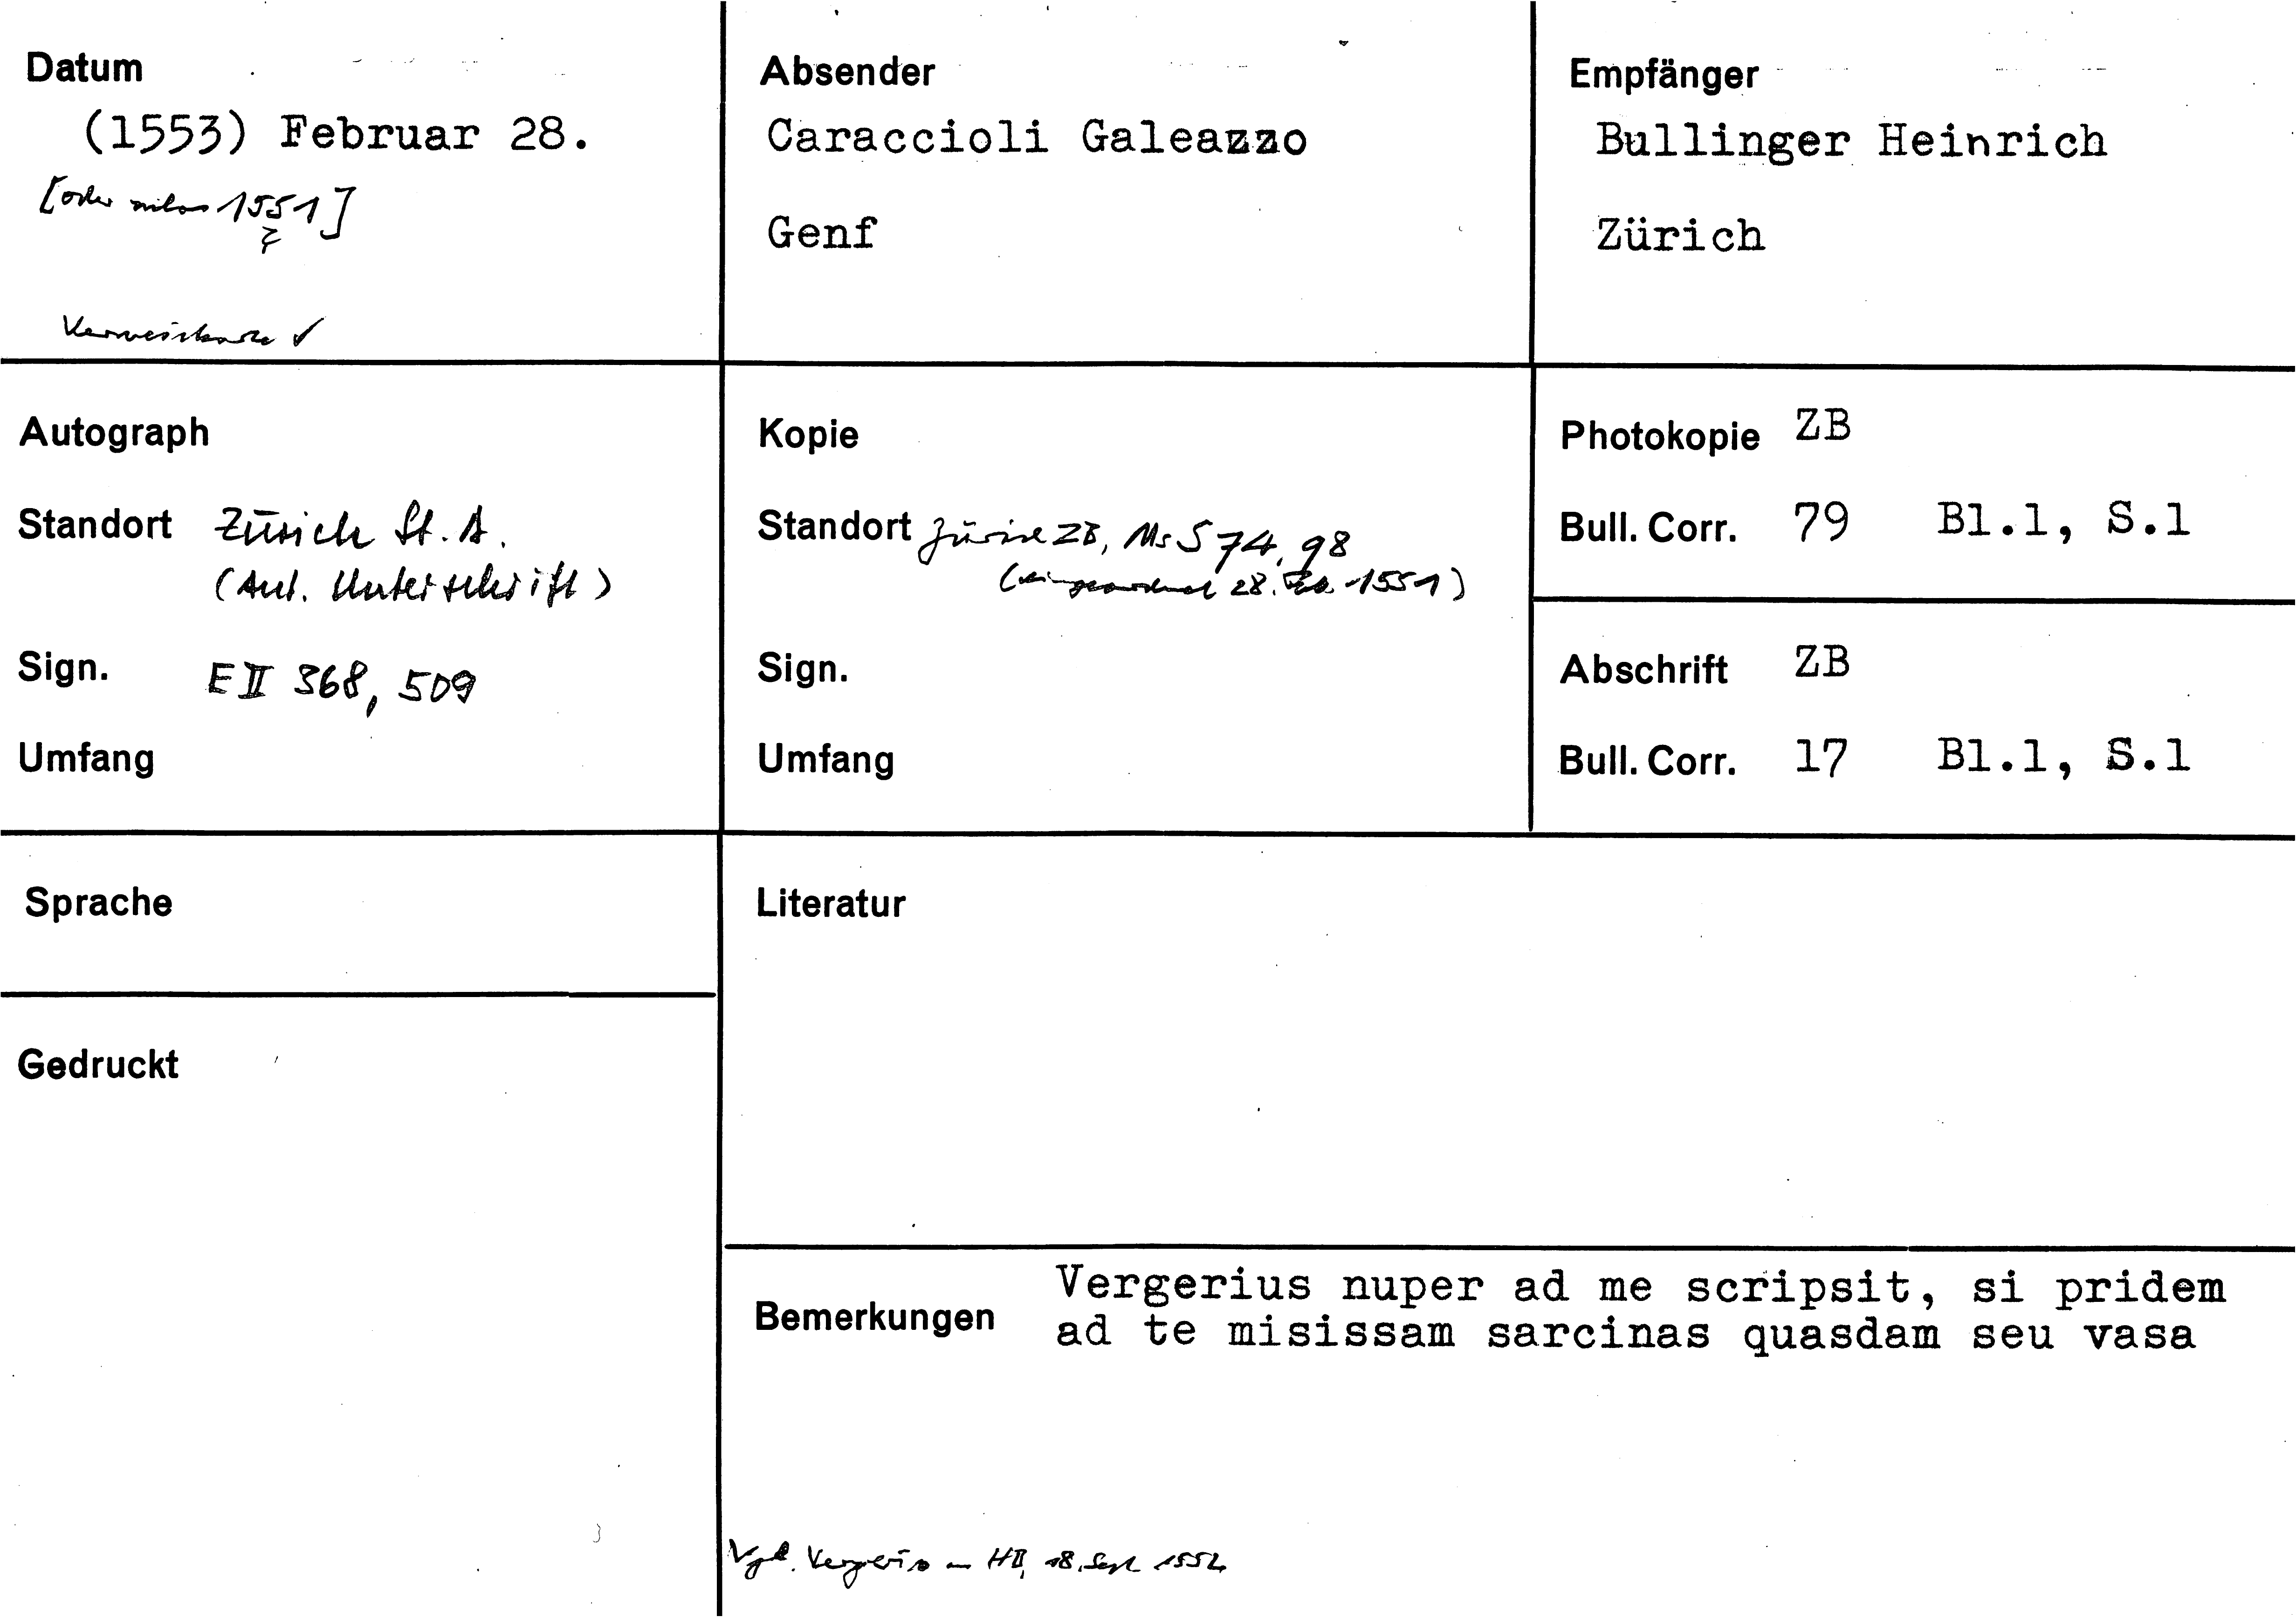 Datum
(1553) Februar 28.
[oder 1551]
Verweiskarte ✓
Absender
Caraccioli Galeazzo
Genf
Empfänger
Bullinger Heinrich
Zürich
Autograph
Standort Zürich St. A.
(Aut. Unterschrift)
Sign. E II 368, 509
Umfang
Kopie
Standort Zürich ZB, Ms S 74, 98
(eingeordnet 28. Feb. 1551)
Sign.
Umfang
Photokopie ZB
Bull. Corr. 79 Bl.1, S.1
Abschrift ZB
Bull. Corr. 17 Bl.1, S.1
Sprache
Gedruckt
Literatur
Bemerkungen
Vergerius nuper ad me scripsit, si pridem
ad te misissam sarcinas quasdam seu vasa
Vgl. Vergerio an HB, 18. Sept 1552